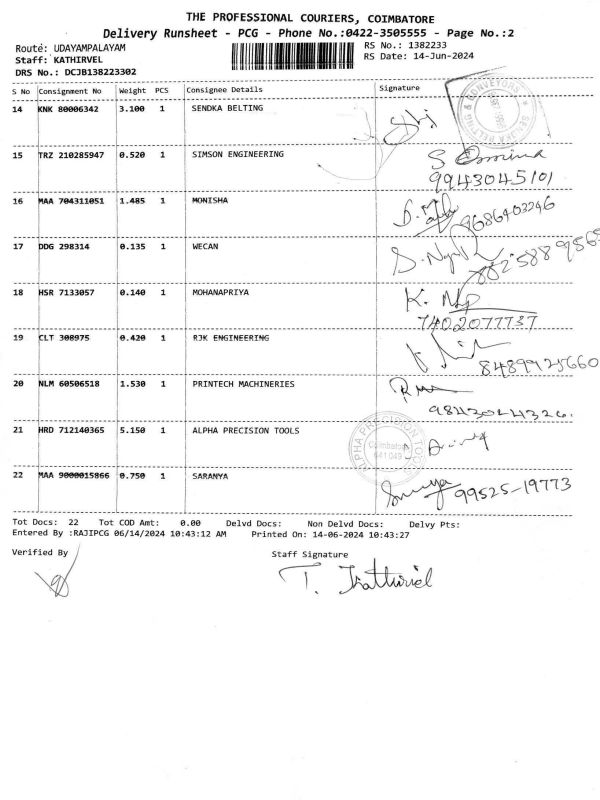 THE PROFESSIONAL COURIERS, COIMBATORE
Delivery Runsheet - PCG - Phone No.:0422-3505555 - Page No.:2
Route: UDAYAMPALAYAM
Staff: KATHIRVEL
DRS No.: DCJB138223302
RS No.: 1382233
RS Date: 14-Jun-2024
S No Consignment No Weight PCS Consignee Details Signature
14 KNK 80006342 3.100 1 SENDKA BELTING
15 TRZ 210285947 0.520 1 SIMSON ENGINEERING
9943045101
16 MAA 704311051 1.485 1 MONISHA
9686403246
17 DDG 298314 0.135 1 WECAN
18 HSR 7133057 0.140 1 MOHANAPRIYA
7402077737
19 CLT 308975 0.420 1 RJK ENGINEERING
8489925660
20 NLM 60506518 1.530 1 PRINTECH MACHINERIES
21 HRD 712140365 5.150 1 ALPHA PRECISION TOOLS
ALPHA PRECISION TOOLS
Coimbatore
641 049
22 MAA 9000015866 0.750 1 SARANYA
99525-19773
Tot Docs: 22 Tot COD Amt: 0.00 Delvd Docs: Non Delvd Docs: Delvy Pts:
Entered By :RAJIPCG 06/14/2024 10:43:12 AM Printed On: 14-06-2024 10:43:27
Verified By
Staff Signature
T. Kathirvel